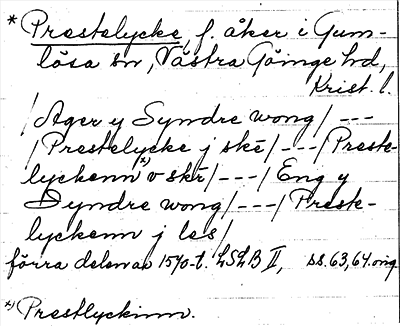 * Prestelycke, f. åker i Gum-
lösa sn, Västra Göinge hd,
Krist. l.
/Ager y Syndre wong/---
/Prestelycke j skē/---/Preste-
lyckenn x) v skē/---/Eng y
Syndre wong/---/Preste-
lyckenn j les/
förra delen av 1570-t. LSLB II, ss. 63, 64. orig
x) Prestlyckinn.